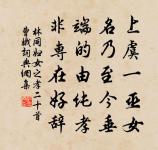 上虞一巫女
名乃至今垂
端的由純孝
非專在好辞
林同婦女之孝二十首
曹娥詞典網集